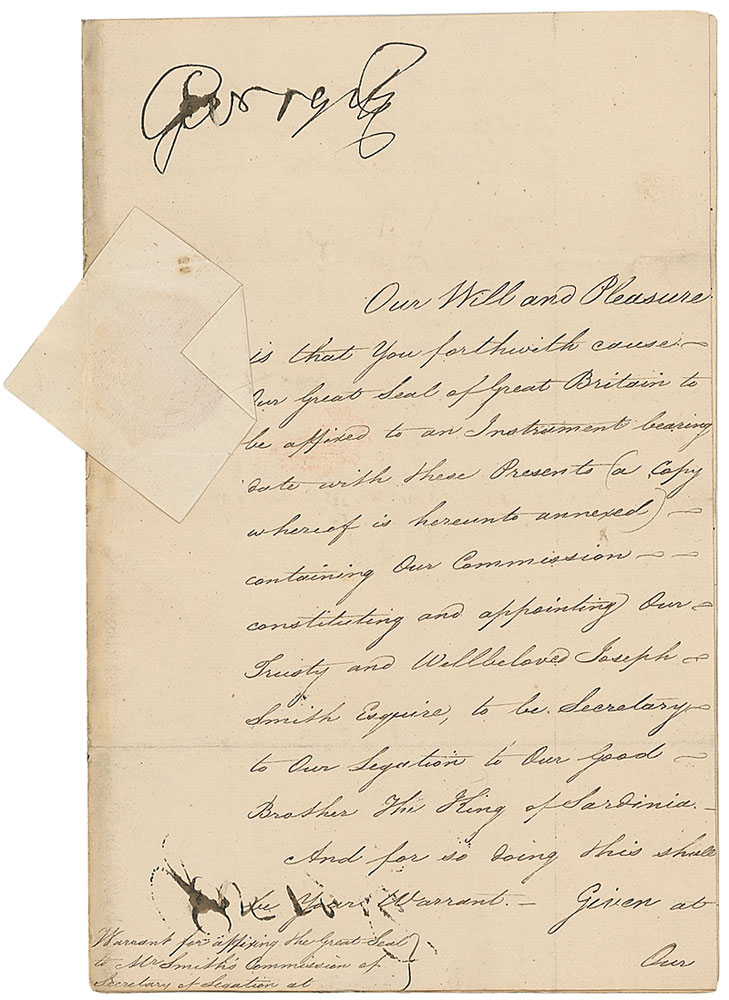 George R
Our Will and Pleasure
is that You forthwith cause
Our Great Seal of Great Britain to
be affixed to an Instrument bearing
date with these Presents (a Copy
whereof is hereunto annexed)
containing Our Commission
constituting and appointing Our
Trusty and Wellbeloved Joseph
Smith Esquire, to be Secretary
to Our Legation to Our Good
Brother The King of Sardinia.
And for so doing this shall
be Your Warrant. Given at
Warrant for affixing the Great Seal
to Mr Smith's Commission of
Secretary of Legation at
Our